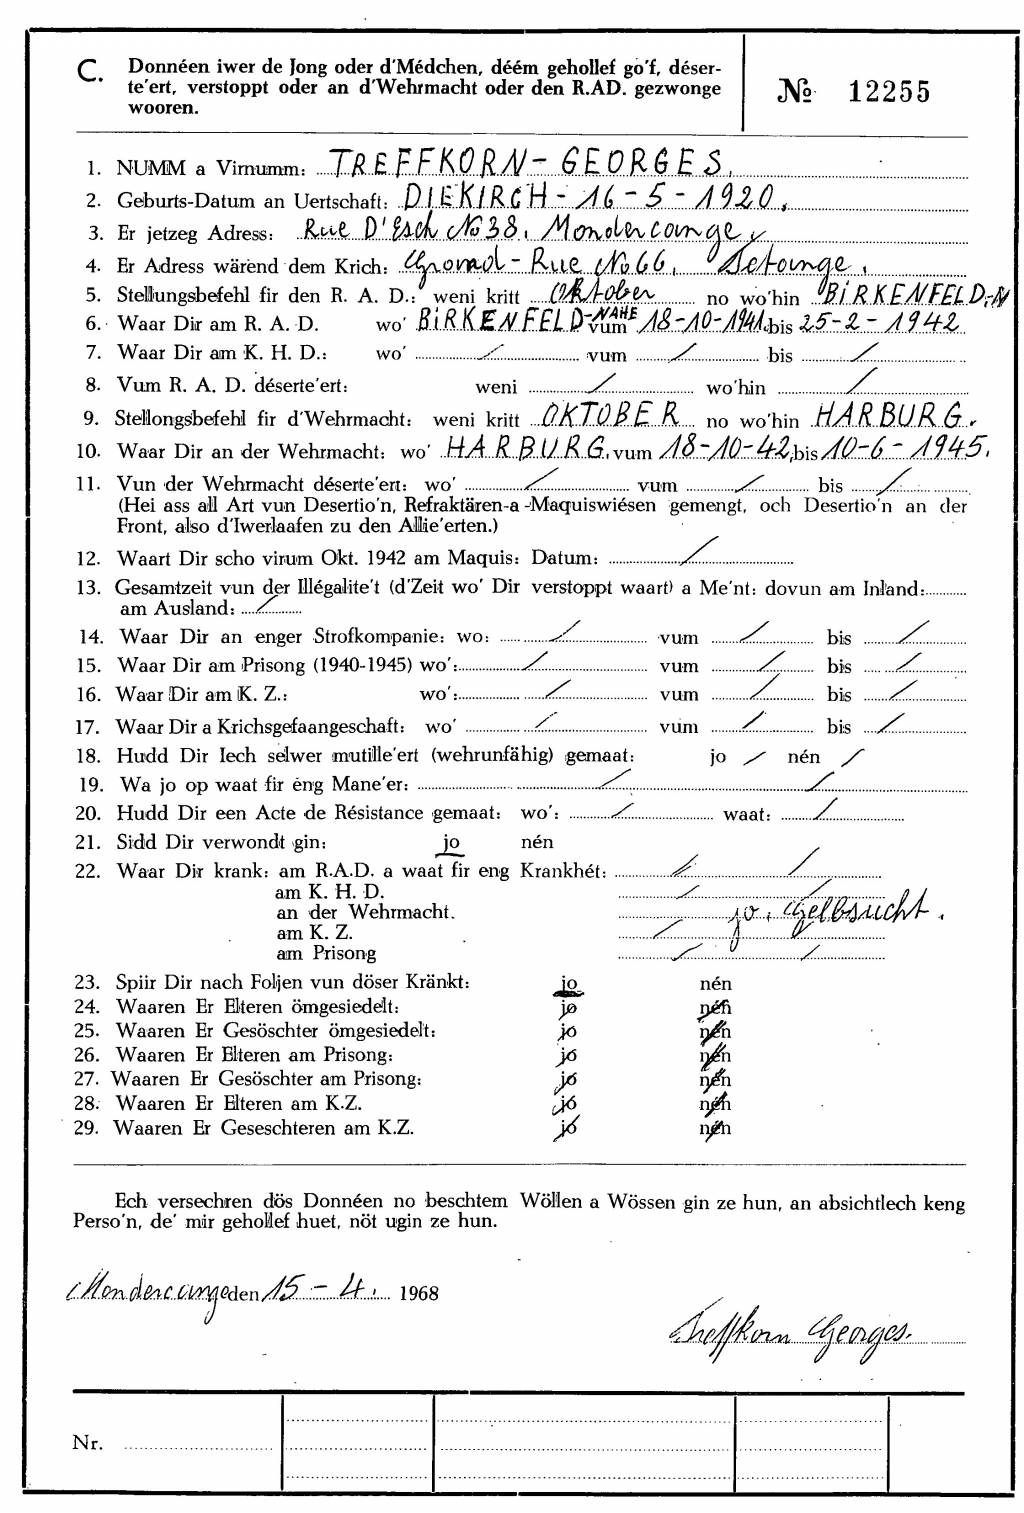 C. Donnéen iwer de Jong oder d'Médchen, déém gehollef go'f, déser-
te'ert, verstoppt oder an d'Wehrmacht oder den R.AD. gezwonge
wooren.
№ 12255
1. NUMM a Virnumm: TREFFKORN - GEORGES.
2. Geburts-Datum an Uertschaft: DIEKIRCH - 16 - 5 - 1920.
3. Er jetzeg Adress: Rue D'Esch No 38. Mondercange
4. Er Adress wärend dem Krich: Grand-Rue No 66.
5. Stellungsbefehl fir den R. A. D.: weni kritt Oktober no wo'hin BIRKENFELD-N
6. Waar Dir am R. A. D. wo' BIRKENFELD-NAHE vum 18-10-1941 bis 25-2-1942
7. Waar Dir am K. H. D.: wo' / vum / bis /
8. Vum R. A. D. déserte'ert: weni / wo'hin /
9. Stellongsbefehl fir d'Wehrmacht: weni kritt OKTOBER no wo'hin HARBURG.
10. Waar Dir an der Wehrmacht: wo' HARBURG. vum 18-10-42 bis 10-6-1945.
11. Vun der Wehrmacht déserte'ert: wo' / vum / bis /
(Hei ass all Art vun Desertio'n, Refraktären-a-Maquiswiésen gemengt, och Desertio'n an der
Front, also d'Iwerlaafen zu den Allie'erten.)
12. Waart Dir scho virum Okt. 1942 am Maquis: Datum: /
13. Gesamtzeit vun der Illégalite't (d'Zeit wo' Dir verstoppt waart) a Me'nt: dovun am Inland:
am Ausland: /
14. Waar Dir an enger Strofkompanie: wo: / vum / bis /
15. Waar Dir am Prisong (1940-1945) wo': / vum / bis /
16. Waar Dir am K. Z.: wo': / vum / bis /
17. Waar Dir a Krichsgefaangeschaft: wo' / vum / bis /
18. Hudd Dir Iech selwer mutille'ert (wehrunfähig) gemaat: jo / nén /
19. Wa jo op waat fir eng Mane'er: / /
20. Hudd Dir een Acte de Résistance gemaat: wo': / waat: /
21. Sidd Dir verwondt gin: jo nén
22. Waar Dir krank: am R.A.D. a waat fir eng Krankhét: / /
am K. H. D. / /
an der Wehrmacht. jo. Gelbsucht.
am K. Z. / /
am Prisong / /
23. Spiir Dir nach Foljen vun döser Kränkt: jo nén
24. Waaren Er Elteren ömgesiedelt: jo nén
25. Waaren Er Gesöschter ömgesiedelt: jo nén
26. Waaren Er Elteren am Prisong: jo nén
27. Waaren Er Gesöschter am Prisong: jo nén
28. Waaren Er Elteren am K.Z. jo nén
29. Waaren Er Geseschteren am K.Z. jo nén
Ech versechren dös Donnéen no beschtem Wöllen a Wössen gin ze hun, an absichtlech keng
Perso'n, de' mir gehollef huet, nöt ugin ze hun.
Mondercange den 15 - 4. 1968
Treffkorn Georges.
Nr.